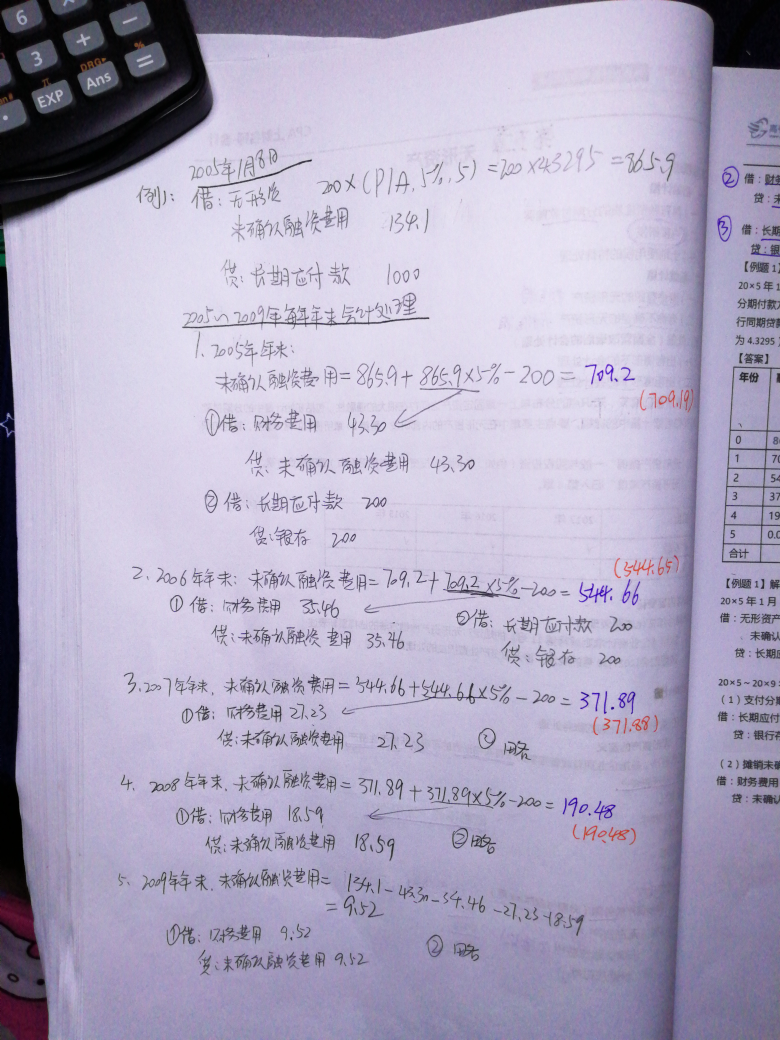 6 ×
3 + -
DRG▸ %
π
EXP Ans =
2005年1月8日
例1: 借: 无形资 200×(P|A, 5%, 5) = 200×4.3295 = 865.9
未确认融资费用 134.1
贷: 长期应付款 1000
2005~2009年每年年末会计处理
1. 2005年年末:
未确认融资费用 = 865.9 + 865.9×5% - 200 = 709.2
(709.19)
①借: 财务费用 43.30
贷: 未确认融资费用 43.30
②借: 长期应付款 200
贷: 银存 200
(544.65)
2. 2006年年末: 未确认融资费用 = 709.2 + 709.2×5% - 200 = 544.66
①借: 财务费用 35.46
贷: 未确认融资费用 35.46
②借: 长期应付款 200
贷: 银存 200
3. 2007年年末, 未确认融资费用 = 544.66 + 544.66×5% - 200 = 371.89
(371.88)
①借: 财务费用 27.23
贷: 未确认融资费用 27.23
② 略
4. 2008年年末, 未确认融资费用 = 371.89 + 371.89×5% - 200 = 190.48
(190.48)
①借: 财务费用 18.59
贷: 未确认融资费用 18.59
② 略
5. 2009年年末, 未确认融资费用 = 134.1 - 43.30 - 34.46 - 27.23 - 18.59
= 9.52
①借: 财务费用 9.52
贷: 未确认融资费用 9.52
② 略
② 借: 财务
贷: 未
③ 借: 长期
贷: 银
【例题1】
20×5 年 1
分期付款方
行同期贷款
为 4.3295
【答案】
年份
0 8
1 70
2 54
3 37
4 19
5 0.0
合计
【例题 1】解
20×5 年 1 月
借: 无形资产
未确认
贷: 长期应
20×5 ~ 20×9
(1) 支付分期
借: 长期应付
贷: 银行存
(2) 摊销未确
借: 财务费用
贷: 未确认